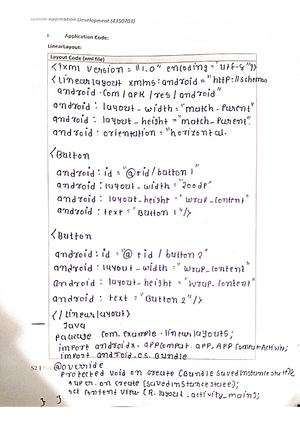 Mobile Application Development (4350703)
I. Application Code:
LinearLayout:
Layout Code (xml file)
<?xml version = "1.0" encoding = "utf-8"?>
<Linearlayout xmlns:android = "http://schemas
android.com/apk/res/android"
android : layout_width = "match-parent"
android : layout_height = "match-parent"
android : orientation = "horizontal.
<Button
android : id = "@+id/button1"
android : layout_width = "200dp"
android : layout_height = "wrap_content"
android : text = "Button 1"/>
<Button
android : id = "@+id / button 2"
android : layout_width = "wrap_content"
Android : layout_height = "wrap_content"
android : text = "Button 2"/>
</linearlayout>
Java
package com.example.linearlayouts;
import androidx.appcompat.app.AppCompatActivity;
import android.os.Bundle
52 | @override
protected void onCreate (Bundle savedInstanceState){
super.onCreate (savedInstanceState);
set content view (R.layout.activity_main);
} }